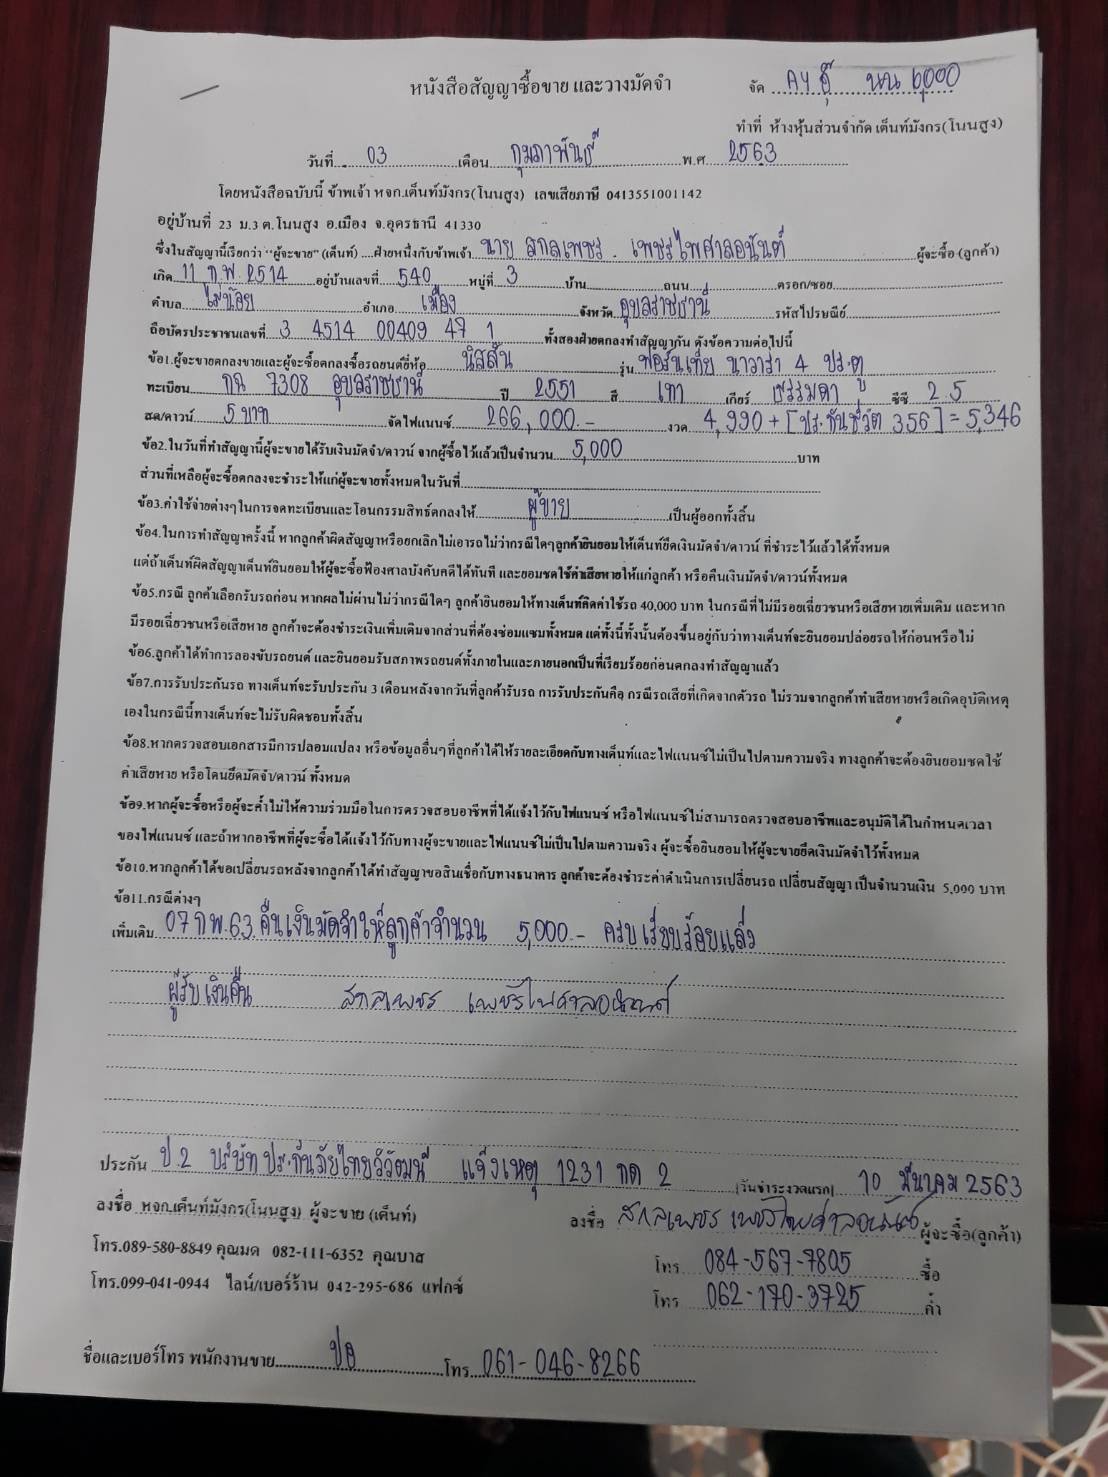 หนังสือสัญญาซื้อขาย และวางมัดจำ
จัด AY อุ๋ นน 6,000
ทำที่ ห้างหุ้นส่วนจำกัด เต็นท์มังกร(โนนสูง)
วันที่ 03 เดือน กุมภาพันธ์ พ.ศ 2563
โดยหนังสือฉบับนี้ ข้าพเจ้า หจก.เต็นท์มังกร(โนนสูง) เลขเสียภาษี 0413551001142
อยู่บ้านที่ 23 ม.3 ต.โนนสูง อ.เมือง จ.อุดรธานี 41330
ซึ่งในสัญญานี้เรียกว่า "ผู้จะขาย" (เต็นท์) ....ฝ่ายหนึ่งกับข้าพเจ้า นาย สกลเพชร เพชรไพศาลอนันต์ ผู้จะซื้อ (ลูกค้า)
เกิด 11 ก.พ. 2514 อยู่บ้านเลขที่ 540 หมู่ที่ 3 บ้าน ถนน ตรอก/ซอย
ตำบล ไร่น้อย อำเภอ เมือง จังหวัด อุบลราชธานี รหัสไปรษณีย์
ถือบัตรประชาชนเลขที่ 3 4514 00409 47 1 ทั้งสองฝ่ายตกลงทำสัญญากัน ดังข้อความต่อไปนี้
ข้อ1.ผู้จะขายตกลงขายและผู้จะซื้อตกลงซื้อรถยนต์ยี่ห้อ นิสสัน รุ่น ฟรอนเทีย นาวารา 4 ประตู
ทะเบียน กฉ 7308 อุบลราชธานี ปี 2551 สี เทา เกียร์ ธรรมดา ซีซี 2.5
สด/ดาวน์ 5 บาท จัดไฟแนนซ์ 266,000.- งวด 4,990 + [ประกันชีวิต 356] = 5,346
ข้อ2.ในวันที่ทำสัญญานี้ผู้จะขายได้รับเงินมัดจำ/ดาวน์ จากผู้ซื้อไว้แล้วเป็นจำนวน 5,000 บาท
ส่วนที่เหลือผู้จะซื้อตกลงจะชำระให้แก่ผู้จะขายทั้งหมดในวันที่
ข้อ3.ค่าใช้จ่ายต่างๆในการจดทะเบียนและโอนกรรมสิทธ์ตกลงให้ ผู้ขาย เป็นผู้ออกทั้งสิ้น
ข้อ4.ในการทำสัญญาครั้งนี้ หากลูกค้าผิดสัญญาหรือยกเลิกไม่เอารถไม่ว่ากรณีใดๆลูกค้ายินยอมให้เต็นท์ยึดเงินมัดจำ/ดาวน์ ที่ชำระไว้แล้วได้ทั้งหมด
แต่ถ้าเต็นท์ผิดสัญญาเต็นท์ยินยอมให้ผู้จะซื้อฟ้องศาลบังคับคดีได้ทันที และยอมชดใช้ค่าเสียหายให้แก่ลูกค้า หรือคืนเงินมัดจำ/ดาวน์ทั้งหมด
ข้อ5.กรณี ลูกค้าเลือกรับรถก่อน หากผลไม่ผ่านไม่ว่ากรณีใดๆ ลูกค้ายินยอมให้ทางเต็นท์คิดค่าใช้รถ 40,000 บาท ในกรณีที่ไม่มีรอยเฉี่ยวชนหรือเสียหายเพิ่มเติม และหาก
มีรอยเฉี่ยวชนหรือเสียหาย ลูกค้าจะต้องชำระเงินเพิ่มเติมจากส่วนที่ต้องซ่อมแซมทั้งหมด แต่ทั้งนี้ทั้งนั้นต้องขึ้นอยู่กับว่าทางเต็นท์จะยินยอมปล่อยรถให้ก่อนหรือไม่
ข้อ6.ลูกค้าได้ทำการลองขับรถยนต์ และยินยอมรับสภาพรถยนต์ทั้งภายในและภายนอกเป็นที่เรียบร้อยก่อนตกลงทำสัญญาแล้ว
ข้อ7.การรับประกันรถ ทางเต็นท์จะรับประกัน 3 เดือนหลังจากวันที่ลูกค้ารับรถ การรับประกันคือ กรณีรถเสียที่เกิดจากตัวรถ ไม่รวมจากลูกค้าทำเสียหายหรือเกิดอุบัติเหตุ
เองในกรณีนี้ทางเต็นท์จะไม่รับผิดชอบทั้งสิ้น
ข้อ8.หากตรวจสอบเอกสารมีการปลอมแปลง หรือข้อมูลอื่นๆที่ลูกค้าได้ให้รายละเอียดกับทางเต็นท์และไฟแนนซ์ไม่เป็นไปตามความจริง ทางลูกค้าจะต้องยินยอมชดใช้
ค่าเสียหาย หรือโดนยึดมัดจำ/ดาวน์ ทั้งหมด
ข้อ9.หากผู้จะซื้อหรือผู้จะค้ำไม่ให้ความร่วมมือในการตรวจสอบอาชีพที่ได้แจ้งไว้กับไฟแนนซ์ หรือไฟแนนซ์ไม่สามารถตรวจสอบอาชีพและอนุมัติได้ในกำหนดเวลา
ของไฟแนนซ์ และถ้าหากอาชีพที่ผู้จะซื้อได้แจ้งไว้กับทางผู้จะขายและไฟแนนซ์ไม่เป็นไปตามความจริง ผู้จะซื้อยินยอมให้ผู้จะขายยึดเงินมัดจำไว้ทั้งหมด
ข้อ10.หากลูกค้าได้ขอเปลี่ยนรถหลังจากลูกค้าได้ทำสัญญาขอสินเชื่อกับทางธนาคาร ลูกค้าจะต้องชำระค่าดำเนินการเปลี่ยนรถ เปลี่ยนสัญญา เป็นจำนวนเงิน 5,000 บาท
ข้อ11.กรณีต่างๆ
เพิ่มเติม 07 ก.พ. 63 คืนเงินมัดจำให้ลูกค้าจำนวน 5,000.- ครบเรียบร้อยแล้ว
ผู้รับเงินคืน สกลเพชร เพชรไพศาลอนันต์
ประกัน ป.2 บริษัท ประกันภัยไทยวิวัฒน์ แจ้งเหตุ 1231 กด 2 (วันชำระงวดแรก) 10 มีนาคม 2563
ลงชื่อ หจก.เต็นท์มังกร(โนนสูง) ผู้จะขาย (เต็นท์)
ลงชื่อ สกลเพชร เพชรไพศาลอนันต์ ผู้จะซื้อ(ลูกค้า)
โทร.089-580-8849 คุณมด 082-111-6352 คุณบาส
โทร 084-567-7805 ซื้อ
โทร.099-041-0944 ไลน์/เบอร์ร้าน 042-295-686 แฟกซ์
โทร 062-170-3725 ค้ำ
ชื่อและเบอร์โทร พนักงานขาย ปอ โทร 061-046-8266